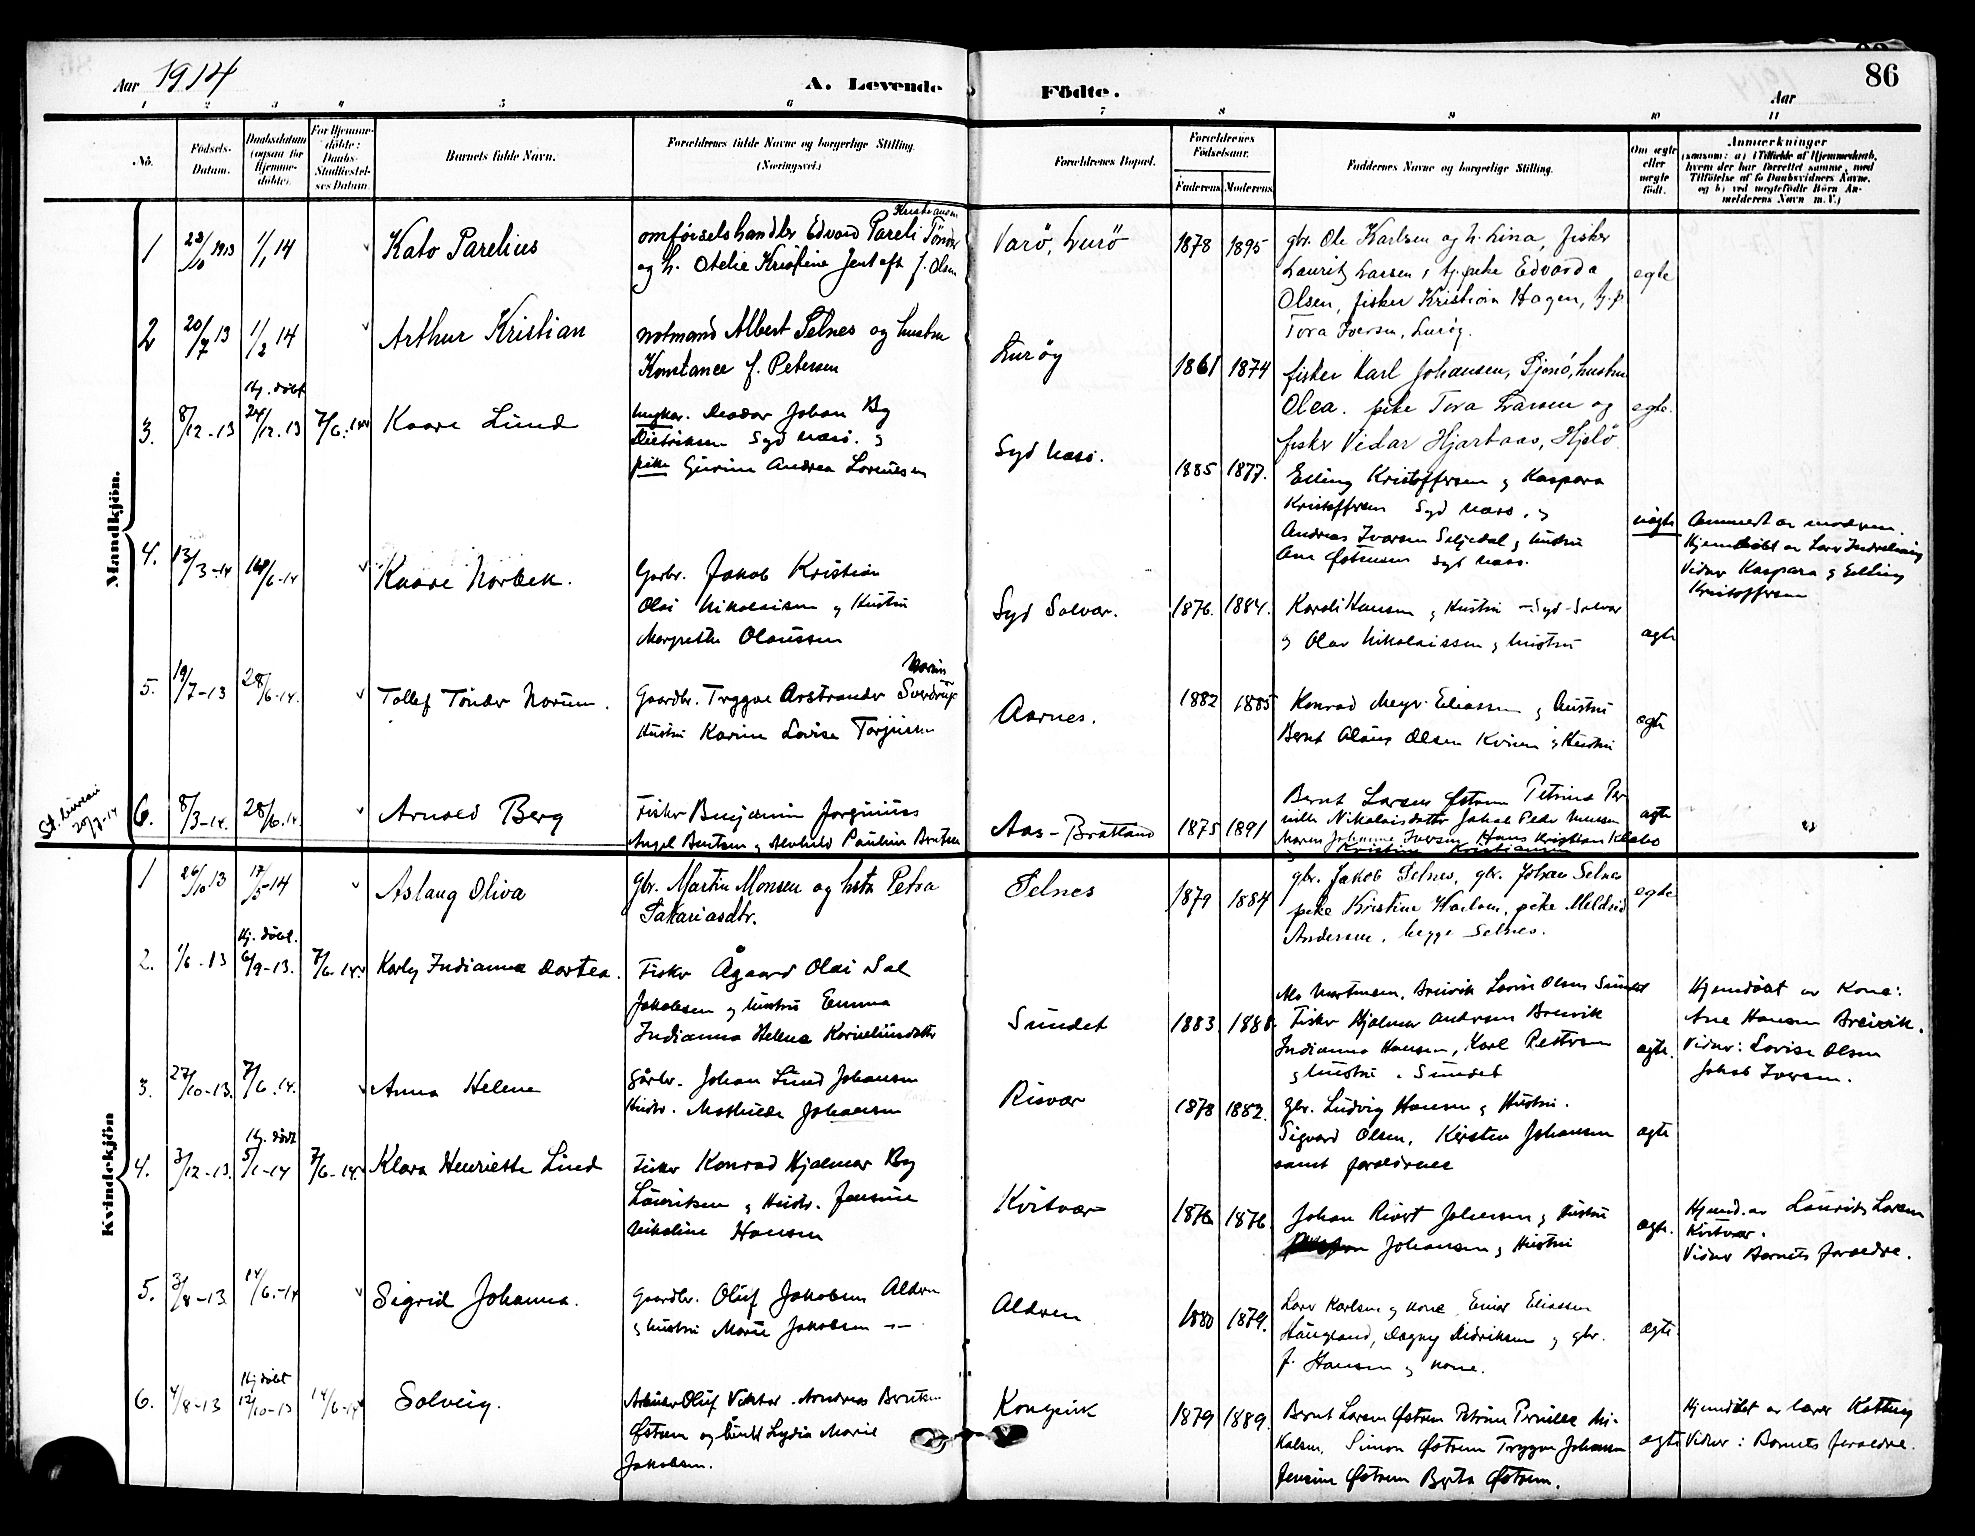 Aar 1914
A. Levende Födte.
86
Aar
1 2 3 4 5 6 7 8 9 10 11
No.
Födsels-Datum.
Daabsdatum (ogsaa for Hjemme-döbte).
For Hjemme-döbte: Daabs-Stadfæstel-ses Datum.
Barnets fulde Navn.
Forældrenes fulde Navne og borgerlige Stilling. (Næringsvei.)
Forældrenes Bopæl.
Forældrenes Födselsaar.
Faderens. Moderens.
Faddernes Navne og borgerlige Stilling.
Om ægte eller uægte født.
Anmærkninger
(saasom: a) i Tilfælde af Hjemmedaab,
hvem der har forrettet samme, med
Tilföielse af to Daabsvidners Navne,
og b) ved uægtefödte Börn An-
melderens Navn m. V.)
Mandkjön.
1 23/10 1913 1/1 14 Kato Parelius
omførselshandler Edvard Pareli Kristiansen Tönder
og h. Otelie Kristine Jentoft f. Olsen
Varö, Lurö 1878 1895
gbr. Ole Karlsen og h. Lina, fisker
Lauritz Larsen, tj.pike Edvarda
Olsen, fisker Kristian Hagen, tj.p.
Tora Iversen, Lurøy.
egte
2 20/7 13 1/2 14 Arthur Kristian
notmand Albert Selnes og hustru
Konstance f. Petersen
Lurøy 1861 1874
fisker Karl Johansen, hustru
Olea. pike Tora Larsen og
fisker Vidar Hjartaas, Hjelö.
egte.
3. 8/12-13 Hj. døbt 24/12.13 7/6.14 Kaare Lund
Ungkar. Teodor Johan By
Dietriksen Syd Næsö. og
pike Gurine Andrea Lorntsen
Syd Næsö. 1885 1877.
Elling Kristoffersen og Kaspara
Kristoffersen Syd Næsö, og
Andreas Iversen Seljedal og hustru
Ane Østensen Syd Næsö.
uægte
Anmeldt av moderen.
Hjemdöbt av Lars Indrelning
Vidner Kaspara og Elling
Kristoffersen
4. 13/3-14 14/6-14 Kaare Norbek.
Garbr. Jakob Kristian
Olai Nikolaisen og Hustru
Margrethe Olaussen
Syd Solvær. 1876. 1884.
Karoli Hansen og Hustru - Syd-Solvær
og Olav Nikolaissen og hustru
ægte
5. 19/7-13 28/6-14. Tollef Tönder Norum.
Gaardbr. Trygve Arstrander Norum Sverdrup
Hustru Karine Lovise Torjussen
Aarnes. 1882 1885
Konrad Meyer Eliassen og Hustru
Bernt Olaus Olsen Kvien og Hustru
ægte
St. bureau 20/7-14
6. 8/3-14. 28/6.14. Arnold Berg
Fisker Benjamin Jorginius
Angel Bentsen og Alvhild Pauline Bentsen
Aas-Bratland 1875 1891
Bernt Larsen Østrem Petrina Per
nille Nikolaisdatter Jakob Peder Monsen
Maren Johanne Iversen Hans Kristian
ægte
Kvindekjön
1 26/10 13 17/5-14 Aslaug Oliva
Gbr. Martin Monsen og hstr Petra
Sakariasdtr.
Selnes 1879 1884
gbr. Jakob Selnes, gbr. Johan Selnes
pike Kristine Karlsen, pike Meldrid
Andersen, begge Selnes.
egte
2. 1/6-13 Hj. döbt. 6/9-13. 7/6-14. Karly Indianna Dortea.
Fisker Ågaard Olai Sal
Jakobsen og hustru Emma
Indianna Helena Korneliusdatter
Sundet 1883. 1888.
Als Martinsen, Breivik Lovise Olsen Sundet
Fisker Hjalmar Andersen Breivik
Indianna Hansen, Karl Pettersen
og hustru. Sundet
ægte.
Hjemdöbt av Kone:
Ane Hansen Breivik.
Vidner: Lovise Olsen
Jakob Iversen.
3. 27/10-13. 7/6.14. Anna Helene
Gårbr. Johan Lund Johansen
Hustr. Mathilde Johansen
Risvær 1878 1882.
Gbr. Ludvig Hansen og Hustru.
Sigvard Olsen, Kirsten Johansen
samt forældrene
ægte
4. 3/12-13. Hj. döbt 5/1-14 7/6-14. Klara Henriette Lund
Fisker Konrad Hjalmar By
Lauritsen og Hustr. Jensine
Nikoline Hansen
Kvitvær 1876 1876.
Johan Rivert Johansen og Hustru
Johansen og Hustru
ægte.
Hjemd. av Laurits Larsen
Kvitvær.
Vidner Barnets forældre.
5. 3/8-13 14/6.-14 Sigrid Johanna.
Gaardbr. Oluf Jakobsen Aldren
og hustru Marie Jakobsen —
Aldren 1880 1879.
Lars Karlsen og kone Einar Eliassen
Haugland, Dagny Didriksen og gbr.
J. Hansen og kone.
ægte
6. 4/8-13 Hj döbt 12/10-13 14/6-14 Solveig.
Arbeider Oluf Viktor Andreas Berntsen
Østrem og Lydia Marie
Jakobsen.
Kongsvik 1879 1889.
Bernt Larsen Østrem Petrine Pernille Ni-
kolsen, Simon Østrem Trygve Johansen
Jensine Østrem Berta Østrem.
ægte
Hjemdöbt av lærer Kolling
Vidner: Barnets forældre.